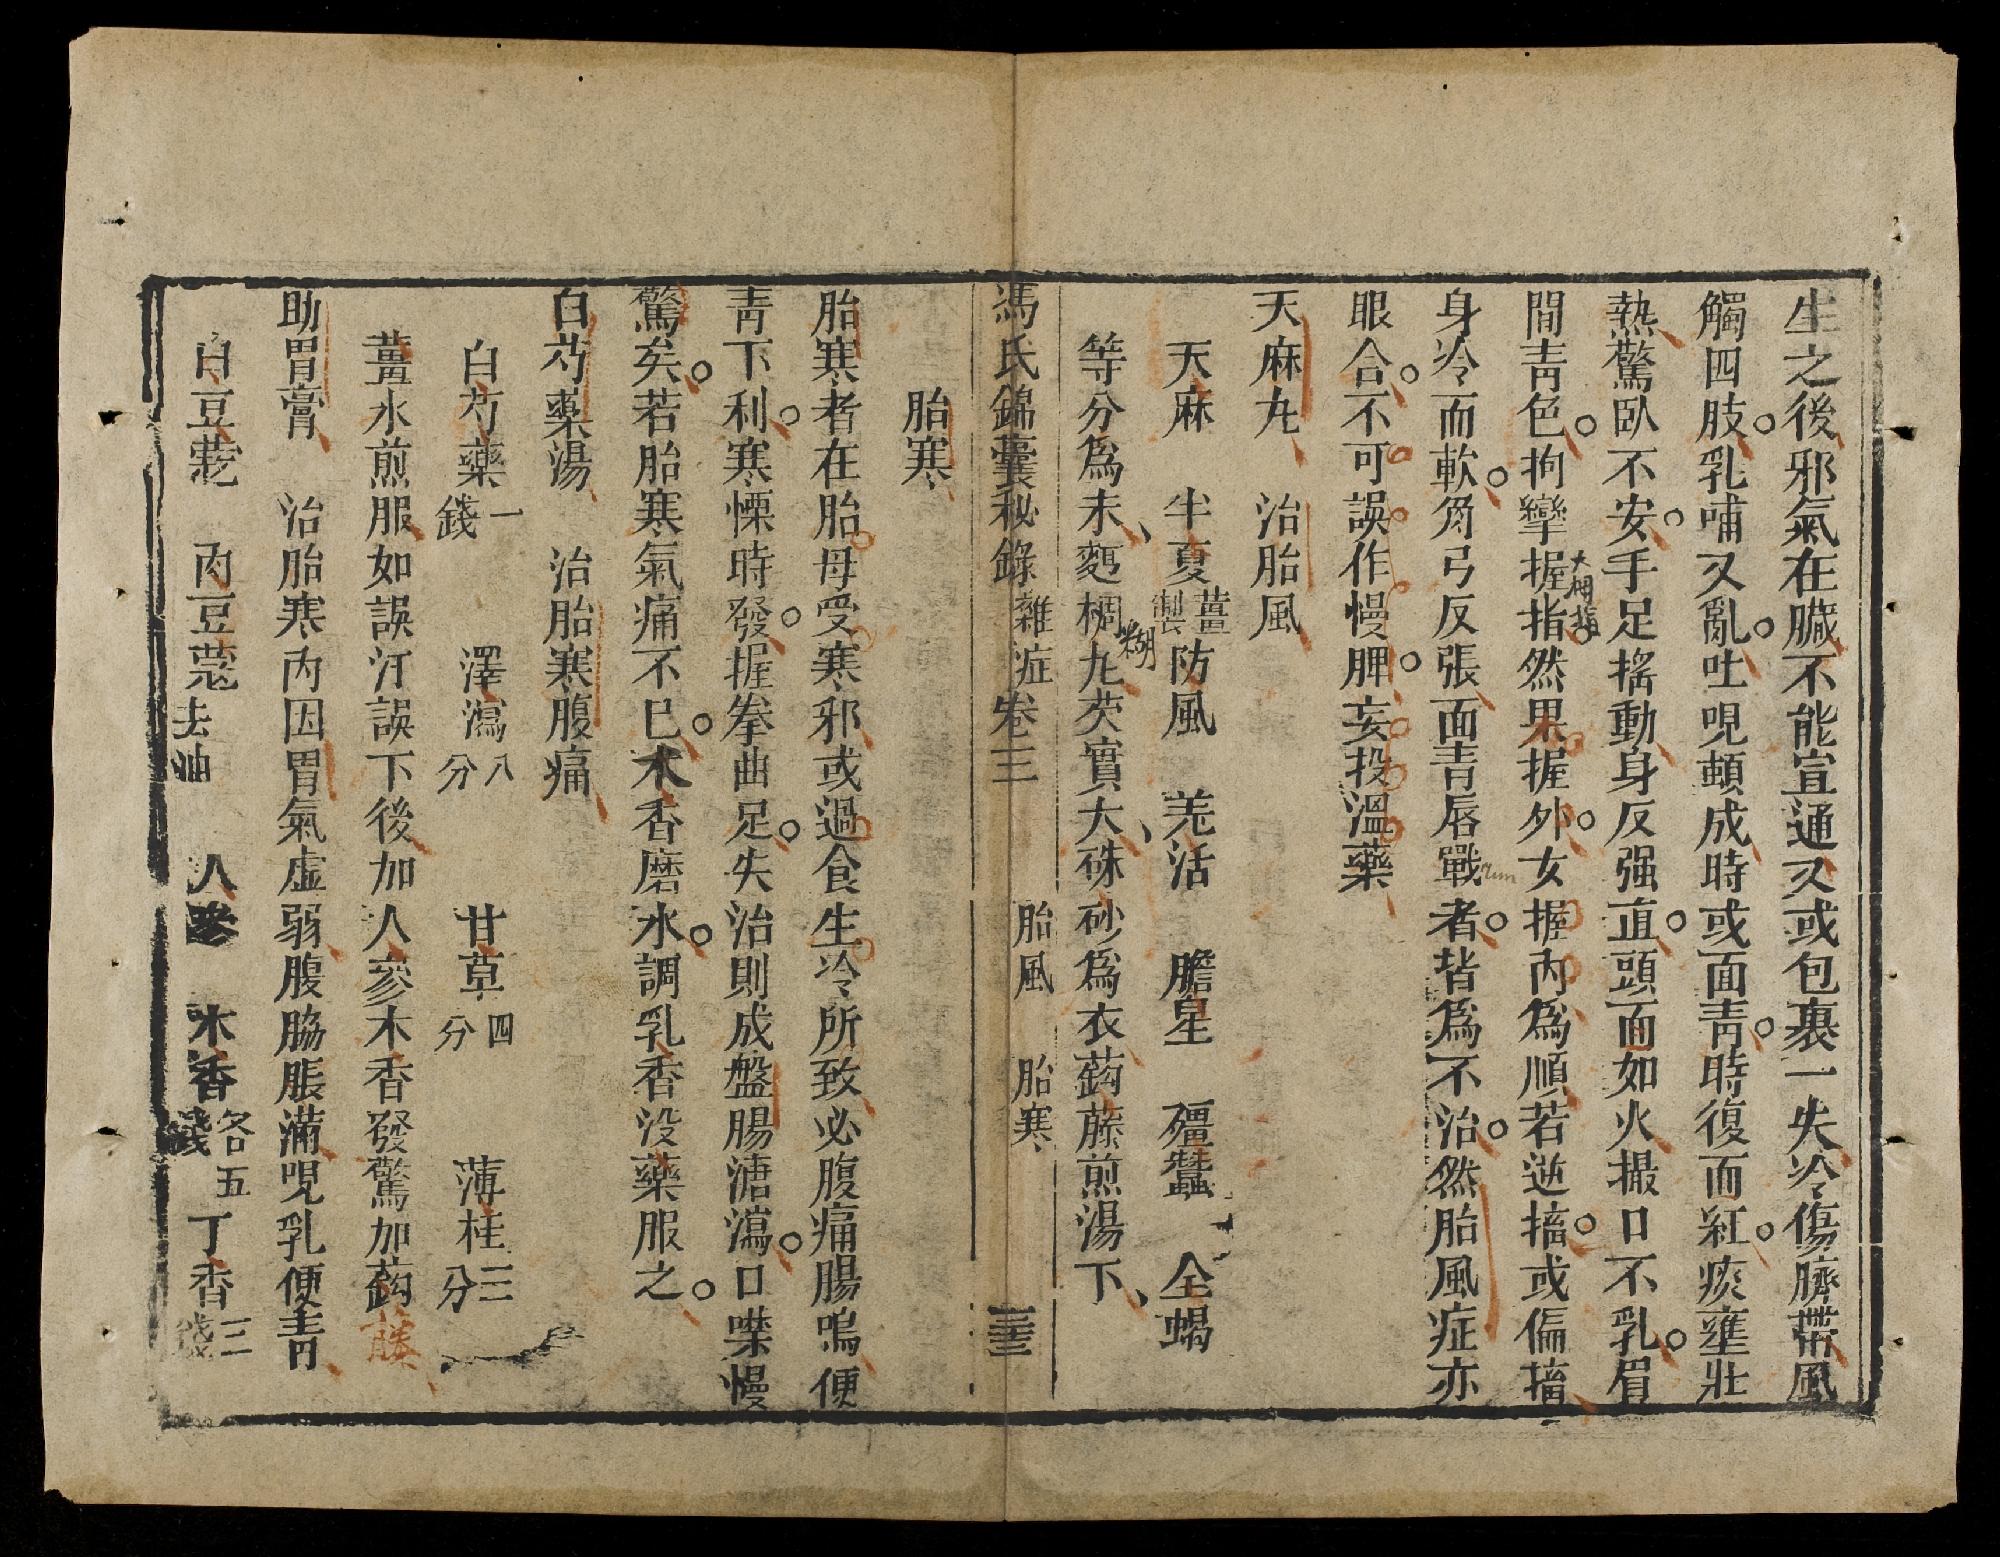 生之後邪氣在臟不能宣通又或包裹一失冷傷臍帶風
觸四肢乳哺又亂吐哯頻成時或面靑時復而紅痰壅壯
熱驚臥不安手足搖動身反强直頭面如火撮口不乳眉
間靑色拘攣握指然男握外女握內爲順若逆搐或偏搐
大拇指
身冷而軟角弓反張面青唇戰者皆爲不治然胎風症亦
眼合不可誤作慢脾妄投溫藥
天麻丸 治胎風
天麻 半夏薑製 防風 羌活 膽星 殭蠶 全蝎
等分爲末麪稠丸芡實大硃砂爲衣鈎藤煎湯下
糊
馮氏錦囊秘錄 雜症 卷三 胎風 胎寒
胎寒
胎寒者在胎母受寒邪或過食生冷所致必腹痛腸鳴便
靑下利寒慄時發握拳曲足失治則成盤腸溏瀉口噤慢
驚矣若胎寒氣痛不已木香磨水調乳香沒藥服之
白芍藥湯 治胎寒腹痛
白芍藥一錢 澤瀉八分 甘草四分 薄桂三分
薑水煎服如誤汗誤下後加人參木香發驚加鈎藤
助胃膏 治胎寒內因胃氣虛弱腹脇脹滿哯乳便青
白豆蔻 肉豆蔻去油 人參 木香各五錢 丁香三錢